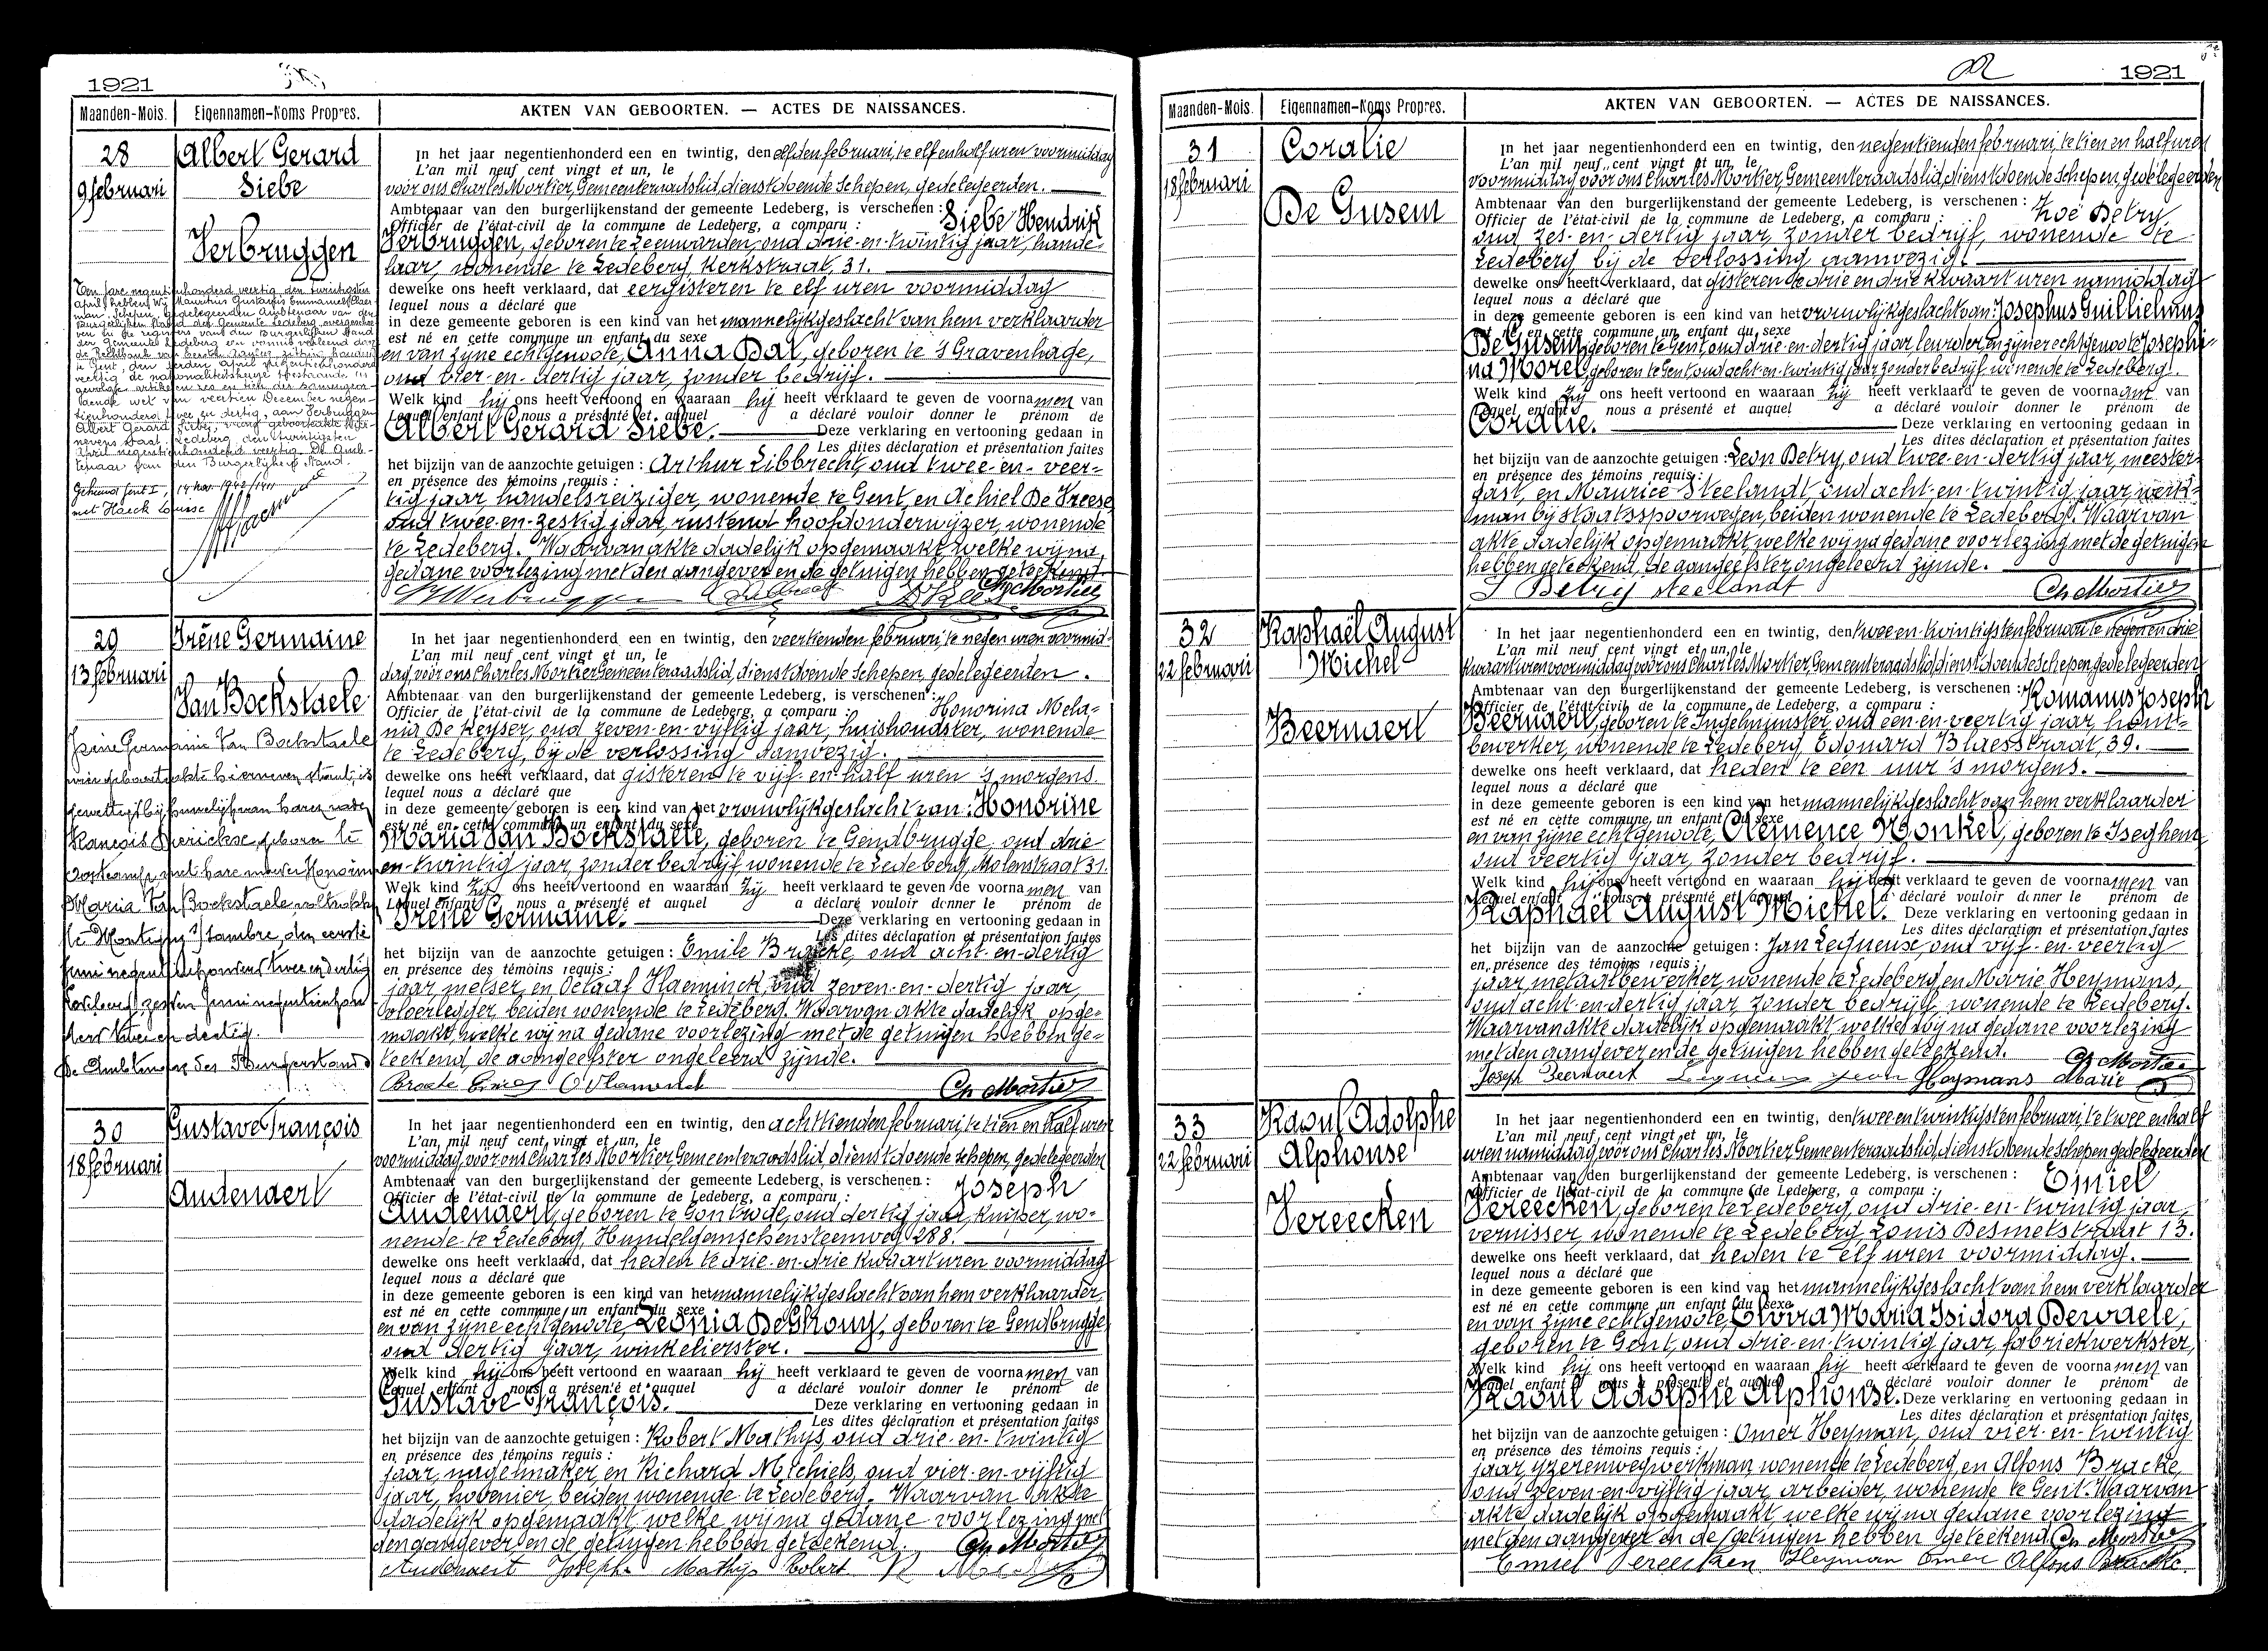 1921
Maanden-Mois. Eigennamen-Noms Propres. AKTEN VAN GEBOORTEN. — ACTES DE NAISSANCES.
28
9 februari
Albert Gerard
Siebe
Verbruggen
In het jaar negentienhonderd een en twintig, den elfden februari, te elf en half uren voormiddag
L'an mil neuf cent vingt et un, le
voor ons Charles Mortier, Gemeenteraadslid, dienstdoende schepen, gedelegeerden.
Ambtenaar van den burgerlijkenstand der gemeente Ledeberg, is verschenen : Siebe Hendrik
Officier de l'état-civil de la commune de Ledeberg, a comparu :
Verbruggen, geboren te Leeuwarden, oud drie-en-twintig jaar, hande-
laar, wonende te Ledeberg, Kerkstraat, 31.
dewelke ons heeft verklaard, dat eergisteren te elf uren voormiddag
lequel nous a déclaré que
in deze gemeente geboren is een kind van het mannelijk geslacht van hem verklaarder
est né en cette commune un enfant du sexe
en van zijne echtgenoote, Anna Dal, geboren te 's Gravenhage,
oud vier-en-dertig jaar, zonder bedrijf.
Welk kind hij ons heeft vertoond en waaraan hij heeft verklaard te geven de voornamen van
Lequel enfant nous a présenté et auquel a déclaré vouloir donner le prénom de
Albert Gerard Siebe. Deze verklaring en vertooning gedaan in
Les dites déclaration et présentation faites
het bijzijn van de aanzochte getuigen : Arthur Libbrecht, oud twee-en-veer-
en présence des témoins requis :
tig jaar, handelsreiziger, wonende te Gent, en Achiel De Vreese
oud twee-en-zestig jaar, rustend hoofdonderwijzer, wonende
te Ledeberg. Waarvan akte dadelijk opgemaakt welke wij na,
gedane voorlezing met den aangever en de getuigen hebben geteekend.
Ch Mortier
29
13 februari
Irène Germaine
Van Bockstaele
Irène Germaine Van Bockstaele
In het jaar negentienhonderd een en twintig, den veertienden februari, te negen uren voormid-
L'an mil neuf cent vingt et un, le
dag, voor ons Charles Mortier Gemeenteraadslid, dienstdoende schepen, gedelegeerden.
Ambtenaar van den burgerlijkenstand der gemeente Ledeberg, is verschenen : Honorina Mela-
Officier de l'état-civil de la commune de Ledeberg, a comparu :
nia De Keyser, oud zeven-en-vijftig jaar, huishoudster, wonende
te Ledeberg, bij de verlossing aanwezig.
dewelke ons heeft verklaard, dat gisteren te vijf-en-half uren 's morgens.
lequel nous a déclaré que
in deze gemeente geboren is een kind van het vrouwlijk geslacht van : Honorine
est né en cette commune un enfant du sexe
Maria Van Bockstaele, geboren te Gendbrugge, oud drie-
en-twintig jaar, zonder bedrijf wonende te Ledeberg, Molenstraat 31.
Welk kind zij ons heeft vertoond en waaraan zij heeft verklaard te geven de voornamen van
Lequel enfant nous a présenté et auquel a déclaré vouloir donner le prénom de
Irène Germaine. Deze verklaring en vertooning gedaan in
Les dites déclaration et présentation faites
het bijzijn van de aanzochte getuigen : Emile Bracke, oud acht-en-dertig
en présence des témoins requis :
jaar, metser, en Octaaf Vlaeminck, oud zeven-en-dertig jaar,
vloerlegger, beiden wonende te Ledeberg. Waarvan akte dadelijk opge-
maakt, welke wij na gedane voorlezing met de getuigen hebben ge-
teekend, de aangeefster ongeleerd zijnde.
Ch Mortier
30
18 februari
Gustave François
Audenaert
In het jaar negentienhonderd een en twintig, den achttienden februari, te tien en half uren
L'an mil neuf cent vingt et un, le
voormiddag, voor ons Charles Mortier Gemeenteraadslid, dienstdoende schepen, gedelegeerden
Ambtenaar van den burgerlijkenstand der gemeente Ledeberg, is verschenen : Joseph
Officier de l'état-civil de la commune de Ledeberg, a comparu :
Audenaert, geboren te Gontrode, oud dertig jaar, kuiper, wo-
nende te Ledeberg, Hundelgemschensteenweg 288.
dewelke ons heeft verklaard, dat heden te drie-en-drie kwaart uren voormiddag
lequel nous a déclaré que
in deze gemeente geboren is een kind van het mannelijk geslacht van hem verklaarder,
est né en cette commune un enfant du sexe
en van zijne echtgenoote Leonia De Ghouy, geboren te Gendbrugge
oud dertig jaar, winkelierster.
Welk kind hij ons heeft vertoond en waaraan hij heeft verklaard te geven de voornamen van
Lequel enfant nous a présenté et auquel a déclaré vouloir donner le prénom de
Gustave François. Deze verklaring en vertooning gedaan in
Les dites déclaration et présentation faites
het bijzijn van de aanzochte getuigen : Robert Mathys, oud drie-en-twintig
en présence des témoins requis :
jaar, nagelmaker, en Richard Michiels, oud vier-en-vijftig
jaar, hovenier, beiden wonende te Ledeberg. Waarvan akte
dadelijk opgemaakt welke wij na gedane voorlezing met
den aangever en de getuigen hebben geteekend.
Ch Mortier
Audenaert Joseph Mathijs Robert
1921
Maanden-Mois. Eigennamen-Noms Propres. AKTEN VAN GEBOORTEN. — ACTES DE NAISSANCES.
31
18 februari
Coralie
De Gusem
In het jaar negentienhonderd een en twintig, den negentienden februari, te tien en half uren
L'an mil neuf cent vingt et un, le
voormiddag voor ons Charles Mortier, Gemeenteraadslid, dienstdoende schepen, gedelegeerden
Ambtenaar van den burgerlijkenstand der gemeente Ledeberg, is verschenen : Zoë Detry,
Officier de l'état-civil de la commune de Ledeberg, a comparu :
oud zes-en-dertig jaar, zonder bedrijf, wonende te
Ledeberg bij de verlossing aanwezig.
dewelke ons heeft verklaard, dat gisteren te drie en drie kwaart uren namiddag
lequel nous a déclaré que
in deze gemeente geboren is een kind van het vrouwlijk geslacht van : Josephus Guillielmus
est né en cette commune un enfant du sexe
De Gusem, geboren te Gent, oud drie-en-dertig jaar, leurder en zijner echtgenoote Josephi-
na Morel, geboren te Gent, oud acht-en-twintig jaar zonder bedrijf wonende te Ledeberg.
Welk kind zij ons heeft vertoond en waaraan zij heeft verklaard te geven de voornaam van
Lequel enfant nous a présenté et auquel a déclaré vouloir donner le prénom de
Coralie. Deze verklaring en vertooning gedaan in
Les dites déclaration et présentation faites
het bijzijn van de aanzochte getuigen : Leon Detry, oud twee-en-dertig jaar, meester-
en présence des témoins requis :
gast, en Maurice Steelandt, oud acht-en-twintig jaar, werk-
man bij staatsspoorwegen, beiden wonende te Ledeberg. Waarvan
akte dadelijk opgemaakt welke wij na gedane voorlezing met de getuigen
hebben geteekend, de aangeefster ongeleerd zijnde.
L Detrij Steelandt Ch Mortier
32
22 februari
Raphaël August
Michel
Beernaert
In het jaar negentienhonderd een en twintig, den twee en twintigsten februari te negen en drie
L'an mil neuf cent vingt et un, le
kwaart uren voormiddag voor ons Charles Mortier, Gemeenteraadslid, dienstdoende schepen gedelegeerden
Ambtenaar van den burgerlijkenstand der gemeente Ledeberg, is verschenen : Romanus Joseph
Officier de l'état-civil de la commune de Ledeberg, a comparu :
Beernaert, geboren te Ingelmunster, oud een-en-veertig jaar, hout-
bewerker, wonende te Ledeberg, Edouard Blaesstraat, 39.
dewelke ons heeft verklaard, dat heden te een uur 's morgens.
lequel nous a déclaré que
in deze gemeente geboren is een kind van het mannelijk geslacht van hem verklaarder
est né en cette commune un enfant du sexe
en van zijne echtgenoote, Clemence Vonkel, geboren te Iseghem,
oud veertig jaar, zonder bedrijf.
Welk kind hij ons heeft vertoond en waaraan hij heeft verklaard te geven de voornamen van
Lequel enfant nous a présenté et auquel a déclaré vouloir donner le prénom de
Raphaël August Michel. Deze verklaring en vertooning gedaan in
Les dites déclaration et présentation faites
het bijzijn van de aanzochte getuigen : Jan Lequeux, oud vijf-en-veertig
en présence des témoins requis :
jaar, metaalbewerker, wonende te Ledeberg, en Marie Heymans,
oud acht-en-dertig jaar zonder bedrijf, wonende te Ledeberg.
Waarvan akte dadelijk opgemaakt welke wij na gedane voorlezing
met den aangever en de getuigen hebben geteekend. Ch Mortier
Joseph Beernaert Heymans Marie
33
22 februari
Raoul Adolphe
Alphonse
Vereecken
In het jaar negentienhonderd een en twintig, den twee en twintigsten februari, te twee en half
L'an mil neuf cent vingt et un, le
uren namiddag, voor ons Charles Mortier, Gemeenteraadslid, dienstdoende schepen gedelegeerden
Ambtenaar van den burgerlijkenstand der gemeente Ledeberg, is verschenen : Emiel
Officier de l'état-civil de la commune de Ledeberg, a comparu :
Vereecken, geboren te Ledeberg, oud drie-en-twintig jaar,
vernisser, wonende te Ledeberg, Louis Desmetstraat 13.
dewelke ons heeft verklaard, dat heden te elf uren voormiddag.
lequel nous a déclaré que
in deze gemeente geboren is een kind van het mannelijk geslacht van hem verklaarder
est né en cette commune un enfant du sexe
en van zijne echtgenoote, Elvira Maria Isidora Dewaele,
geboren te Gent, oud drie-en-twintig jaar, fabriekwerkster,
Welk kind hij ons heeft vertoond en waaraan hij heeft verklaard te geven de voornamen van
Lequel enfant nous a présenté et auquel a déclaré vouloir donner le prénom de
Raoul Adolphe Alphonse. Deze verklaring en vertooning gedaan in
Les dites déclaration et présentation faites
het bijzijn van de aanzochte getuigen : Omer Heyman, oud vier-en-twintig
en présence des témoins requis :
jaar, yzerenwegwerkman wonende te Ledeberg, en Alfons Bracke,
oud zeven-en-vijftig jaar, arbeider, wonende te Gent. Waarvan
akte dadelijk opgemaakt welke wij na gedane voorlezing
met den aangever en de getuigen hebben geteekend. Ch Mortier
Emiel Vereecken Heyman Omer Alfons Bracke